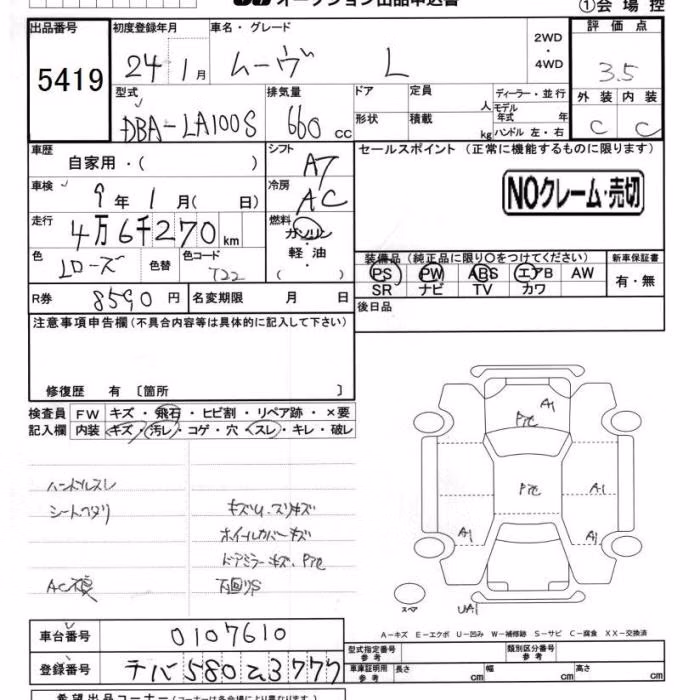 オークション出品申込書
①会場控
出品番号 5419
初度登録年月 24年1月
車名・グレード ムーヴ L
2WD・4WD
評価点 3.5
型式 DBA-LA100S
排気量 660 cc
ドア 形状
定員 人 積載 kg
ディーラー・並行
モデル年式 年
ハンドル 左・右
外装 C 内装 C
車歴 自家用・( )
シフト AT
セールスポイント (正常に機能するものに限ります)
車検 9年1月( 日)
冷房 AC
NOクレーム・売切
走行 4万6千270km
燃料 ガソリン・軽油 ( )
色 Lローズ 色替 色コード T22
装備品 (純正品に限り○をつけてください)
PS PW ABS エアB AW
SR ナビ TV カワ
新車保証書 有・無
R券 8590円 名変期限 月 日
後日品
注意事項申告欄 (不具合内容等は具体的に記入して下さい)
修復歴 有 〔箇所 〕
検査員記入欄
FW キズ・飛石・ヒビ割・リペア跡・×要
内装 キズ・汚レ・コゲ・穴・スレ・キレ・破レ
ハンドルスレ
シートヘタリ
キズU、スリキズ
ホイールカバーキズ
ドアミラーキズ、P他
AC不良 下回りS
A1
P他
P他 A1
A1 A1
スペア UA1
A-キズ E-エクボ U-凹み W-補修跡 S-サビ C-腐食 XX-交換済
車台番号 0107610
型式指定番号 参考 類別区分番号 参考
登録番号 チバ580ム3777
車庫証明用 参考 長さ cm 幅 cm 高さ cm
希望出品コーナー (コーナーは各会場により異なります)